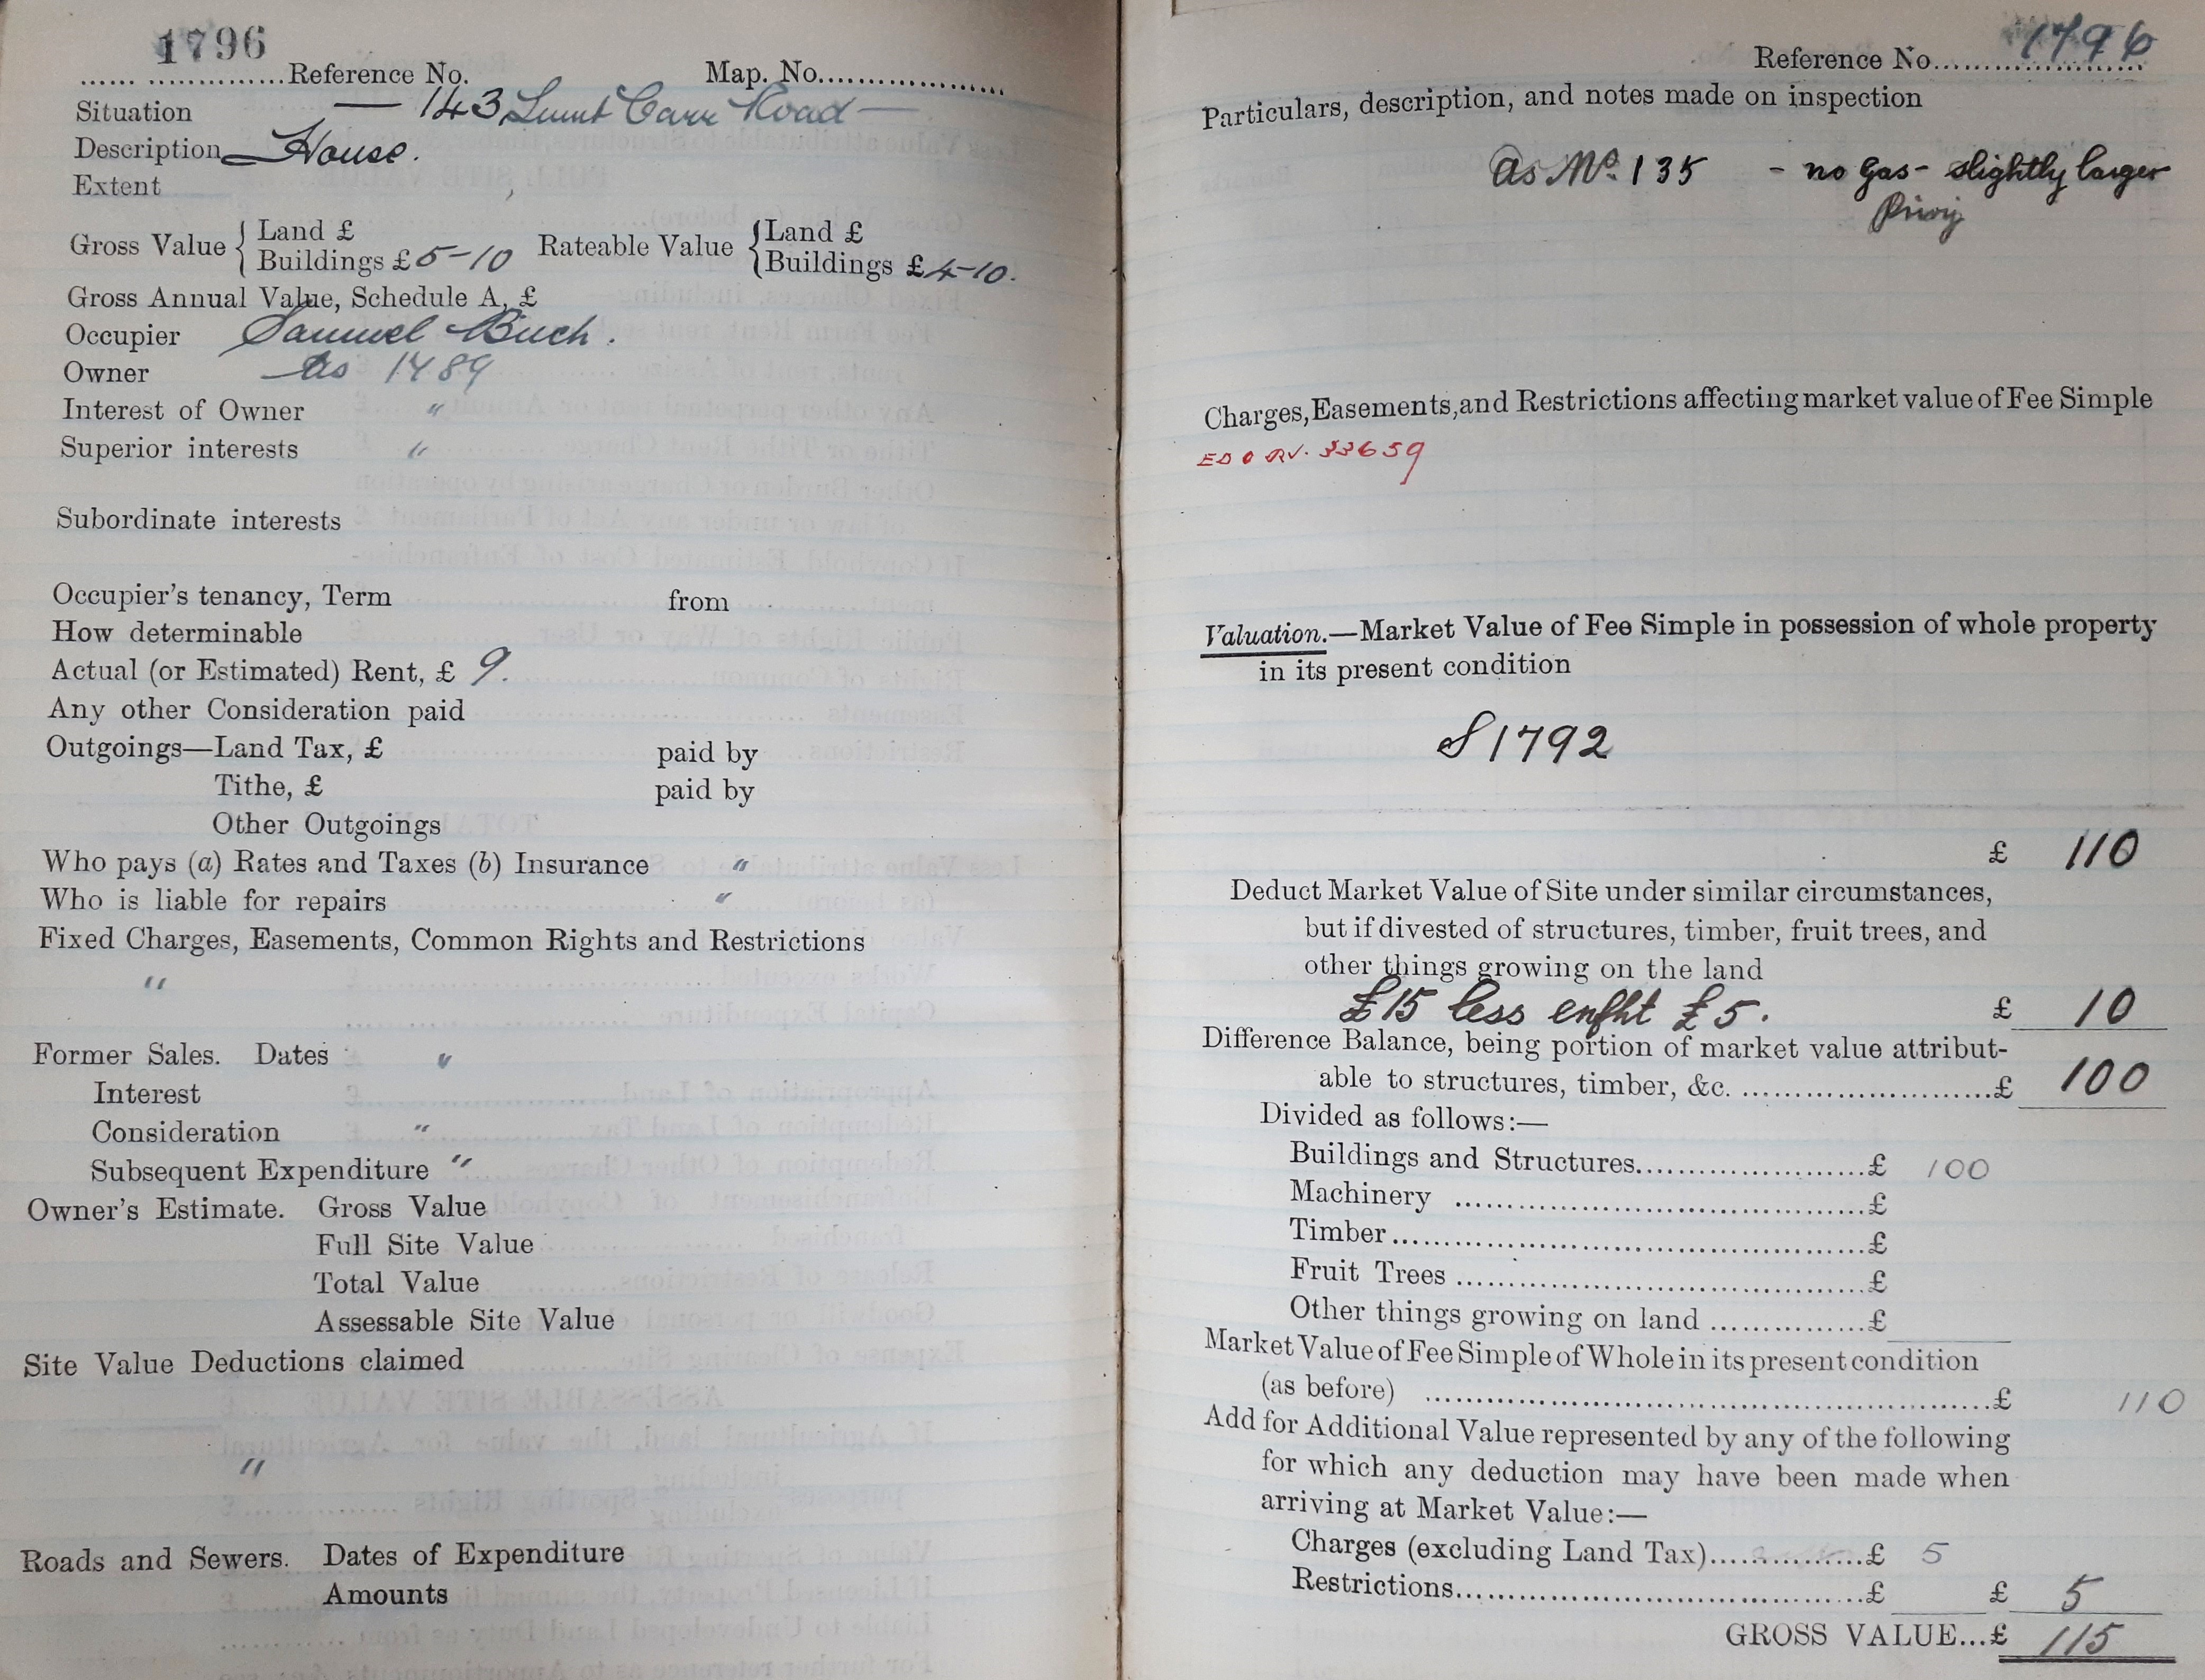 1796
Reference No. Map. No.
Situation — 143 Lumb Carr Road —
Description House.
Extent
Gross Value { Land £
Buildings £ 5-10
Rateable Value { Land £
Buildings £ 4-10.
Gross Annual Value, Schedule A, £
Occupier Samuel Buch.
Owner as 1489
Interest of Owner "
Superior interests "
Subordinate interests
Occupier's tenancy, Term from
How determinable
Actual (or Estimated) Rent, £ 9.
Any other Consideration paid
Outgoings—Land Tax, £ paid by
Tithe, £ paid by
Other Outgoings
Who pays (a) Rates and Taxes (b) Insurance "
Who is liable for repairs "
Fixed Charges, Easements, Common Rights and Restrictions
"
Former Sales. Dates "
Interest
Consideration "
Subsequent Expenditure "
Owner's Estimate. Gross Value
Full Site Value
Total Value
Assessable Site Value
Site Value Deductions claimed
"
Roads and Sewers. Dates of Expenditure
Amounts
Reference No. 1796
Particulars, description, and notes made on inspection
as No. 135 - no gas - slightly larger
Privy
Charges, Easements, and Restrictions affecting market value of Fee Simple
33659
Valuation.—Market Value of Fee Simple in possession of whole property
in its present condition
1792
£ 110
Deduct Market Value of Site under similar circumstances,
but if divested of structures, timber, fruit trees, and
other things growing on the land
£15 less enfht £5. £ 10
Difference Balance, being portion of market value attribut-
able to structures, timber, &c. £ 100
Divided as follows:—
Buildings and Structures £ 100
Machinery £
Timber £
Fruit Trees £
Other things growing on land £
Market Value of Fee Simple of Whole in its present condition
(as before) £ 110
Add for Additional Value represented by any of the following
for which any deduction may have been made when
arriving at Market Value:—
Charges (excluding Land Tax) £ 5
Restrictions £ £ 5
GROSS VALUE...£ 115